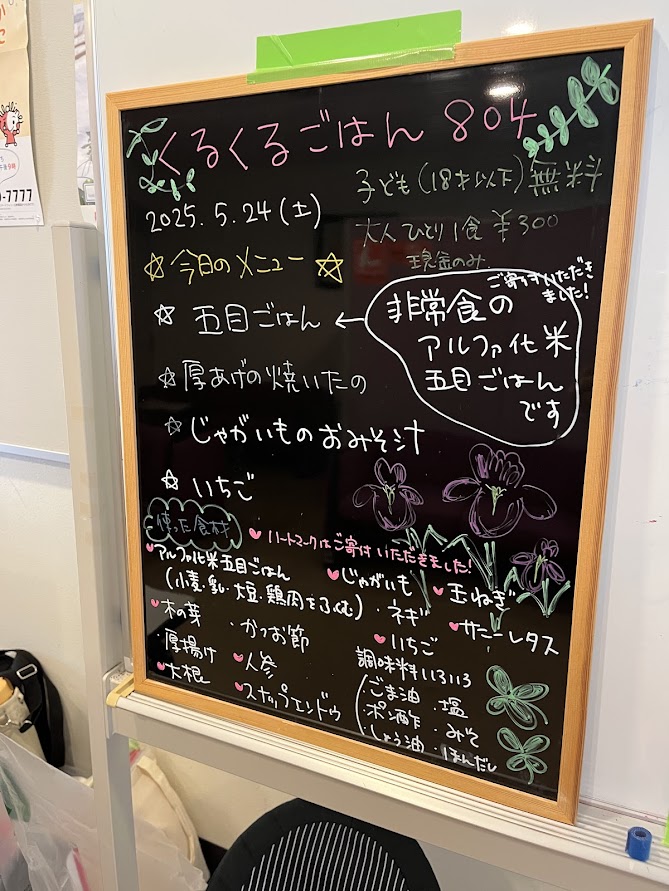 くるくるごはん 804
2025.5.24(土)
子ども(18才以下)無料
大人ひとり1食 ¥300
現金のみ
☆今日のメニュー☆
☆ 五目ごはん ←
ご寄付いただき
ました!
非常食の
アルファ化米
五目ごはん
です
☆厚あげの焼いたの
☆じゃがいものおみそ汁
☆いちご
使った食材
♥ハートマークはご寄付いただきました!
♥アルファ化米五目ごはん
(小麦・乳・大豆・鶏肉をふくむ)
♥木の芽
・厚揚げ
♥大根
・かつお節
♥人参
♥スナップエンドウ
♥じゃがいも
・ネギ
♥いちご
♥玉ねぎ
♥サニーレタス
調味料いろいろ
・ごま油 ・塩
・ポン酢 ・みそ
・しょう油 ・ほんだし
-7777